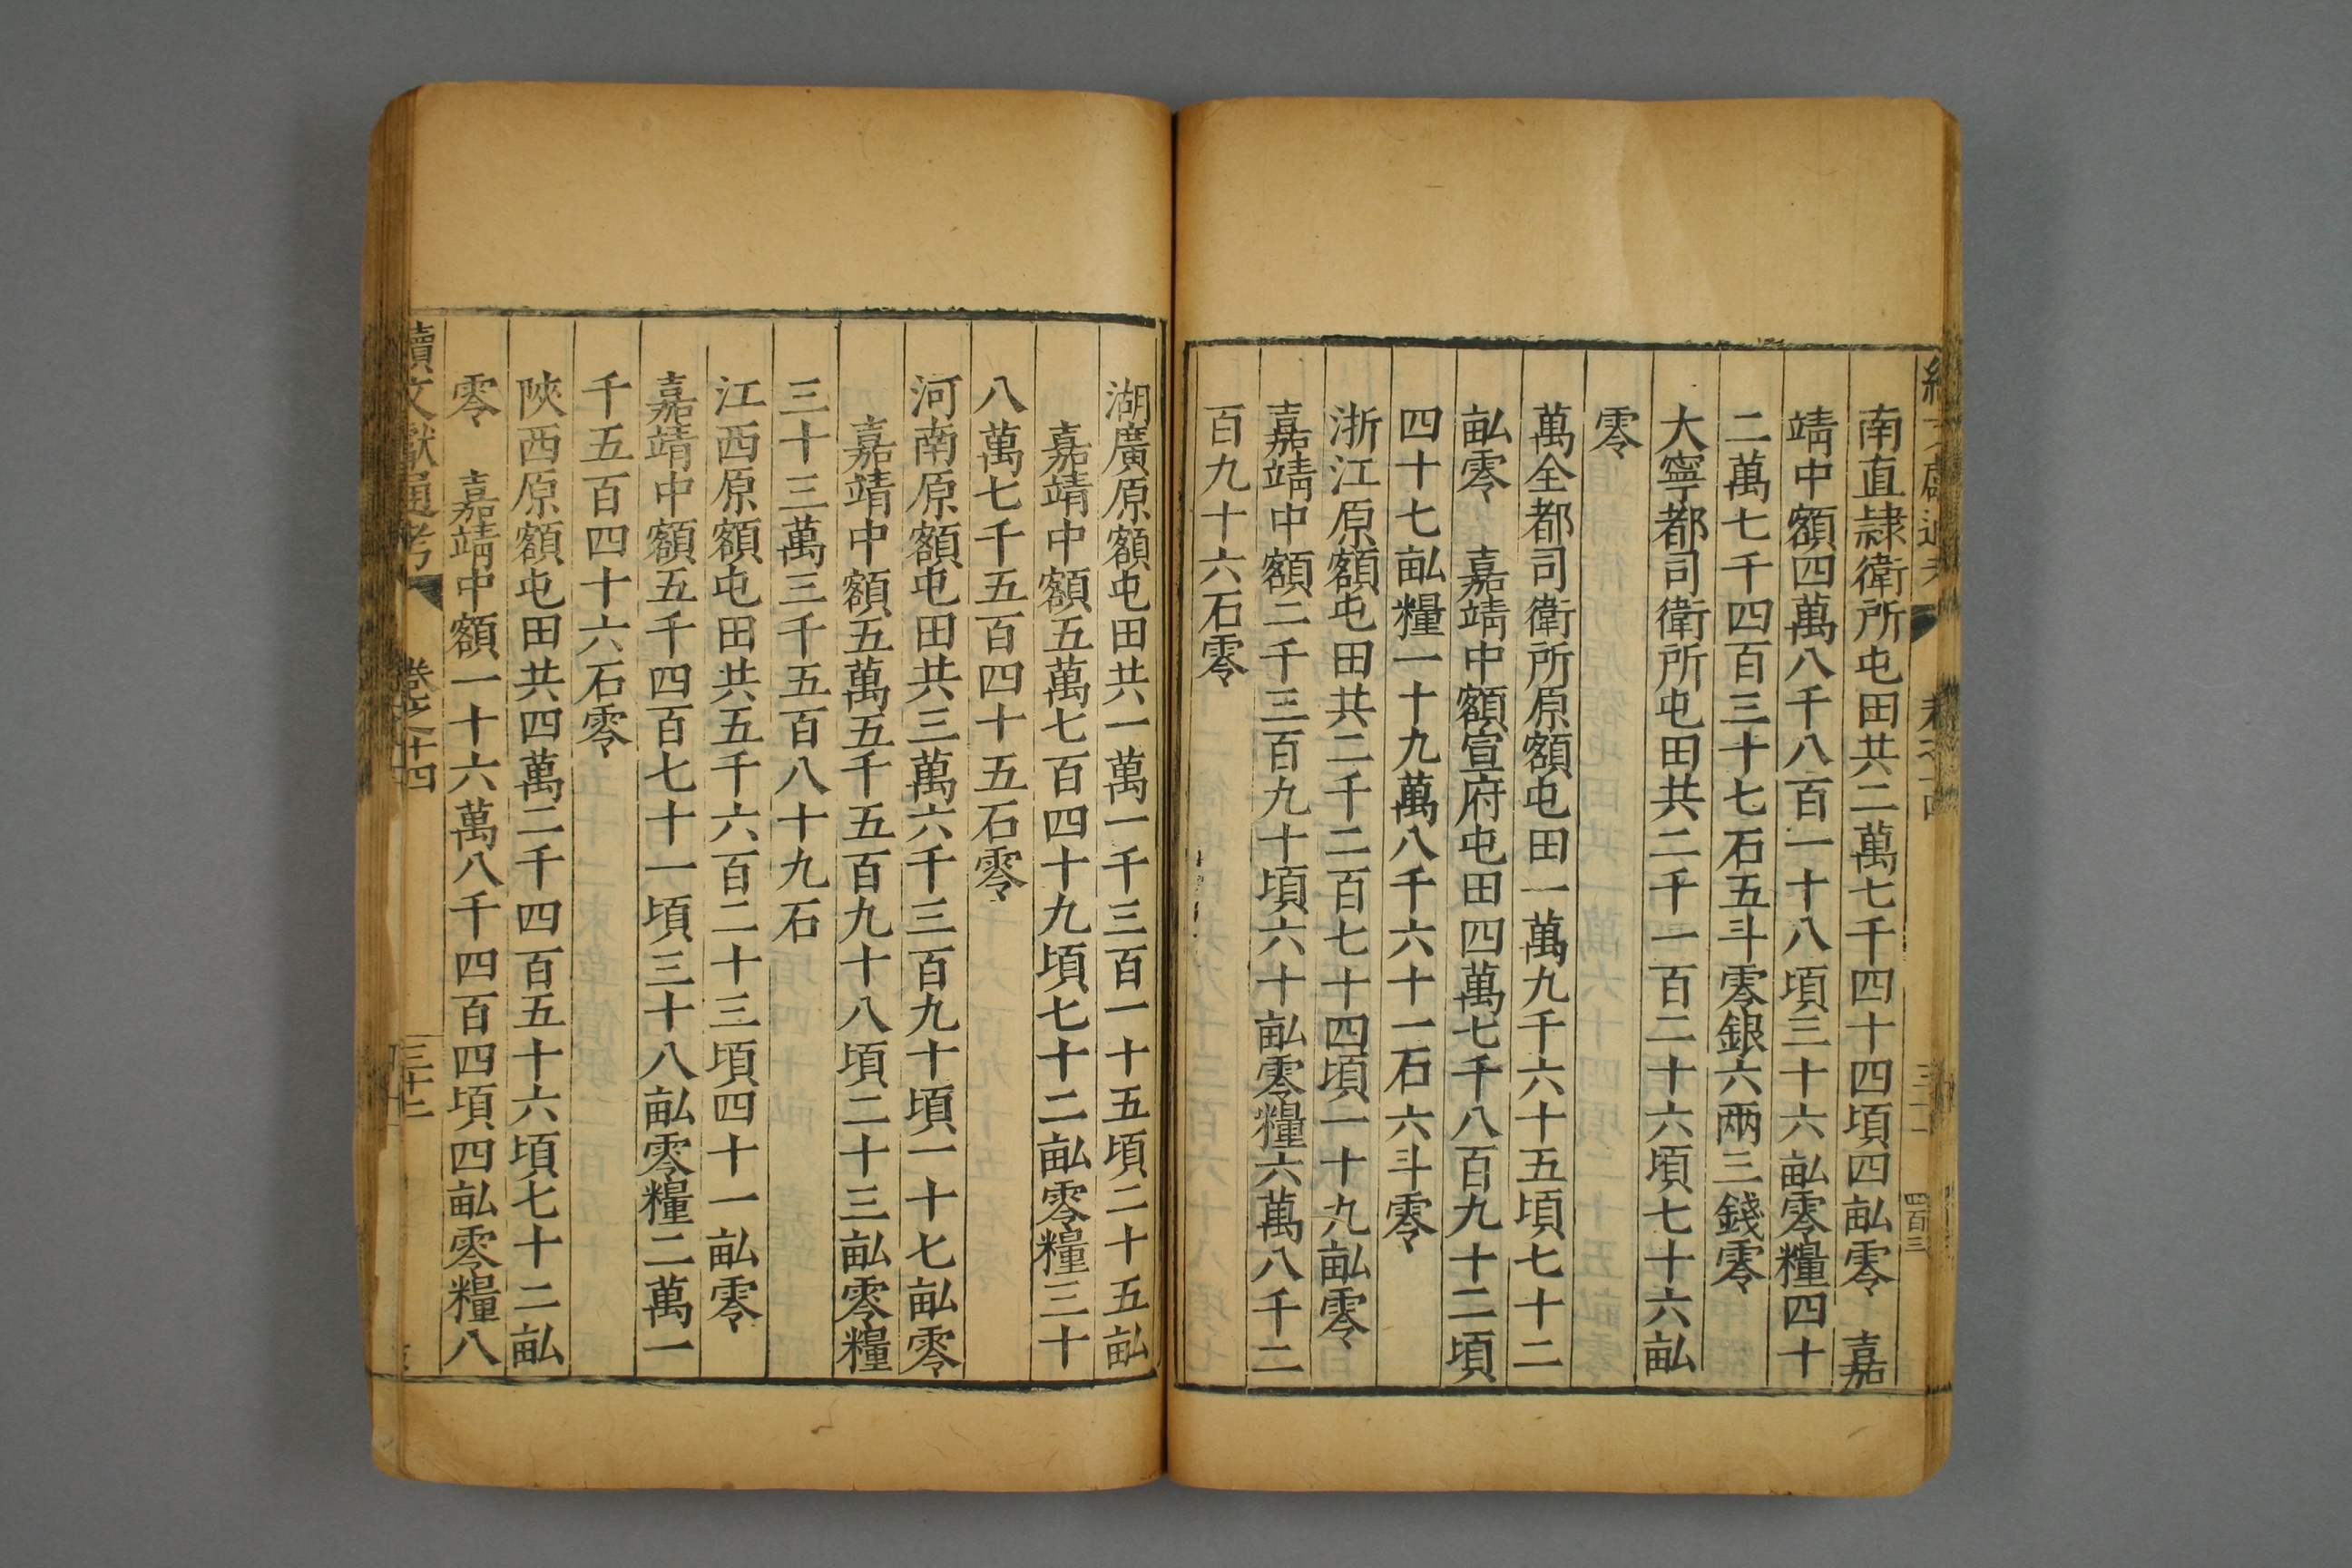 南直隷衛所屯田共二萬七千四十四頃四畝零　嘉
靖中額四萬八千八百一十八頃三十六畝零糧四十
二萬七千四百三十七石五斗零銀六兩三錢零
大寧都司衛所屯田共二千一百二十六頃七十六畝
零
萬全都司衛所原額屯田一萬九千六十五頃七十二
畝零　嘉靖中額宣府屯田四萬七千八百九十二頃
四十七畝糧一十九萬八千六十一石六斗零
浙江原額屯田共二千二百七十四頃一十九畝零
嘉靖中額二千三百九十頃六十畝零糧六萬八千二
百九十六石零
四百三
湖廣原額屯田共一萬一千三百一十五頃二十五畝
嘉靖中額五萬七百四十九頃七十二畝零糧三十
八萬七千五百四十五石零
河南原額屯田共三萬六千三百九十頃一十七畝零
嘉靖中額五萬五千五百九十八頃二十三畝零糧
三十三萬三千五百八十九石
江西原額屯田共五千六百二十三頃四十一畝零
嘉靖中額五千四百七十一頃三十八畝零糧二萬一
千五百四十六石零
陝西原額屯田共四萬二千四百五十六頃七十二畝
零　嘉靖中額一十六萬八千四百四頃四畝零糧八
續文獻通考　卷之十四　三十二